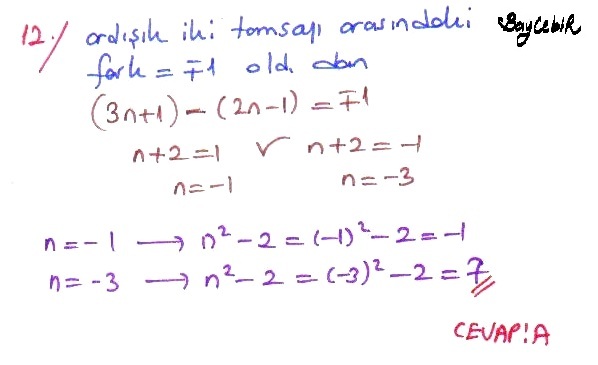 12./ ardışık iki tamsayı arasındaki BayCebİR
fark = ∓1 old. dan
(3n+1) - (2n-1) = ∓1
n+2=1 ∨ n+2=-1
n=-1 n=-3
n=-1 → n² - 2 = (-1)² - 2 = -1
n=-3 → n² - 2 = (-3)² - 2 = 7
CEVAP:A